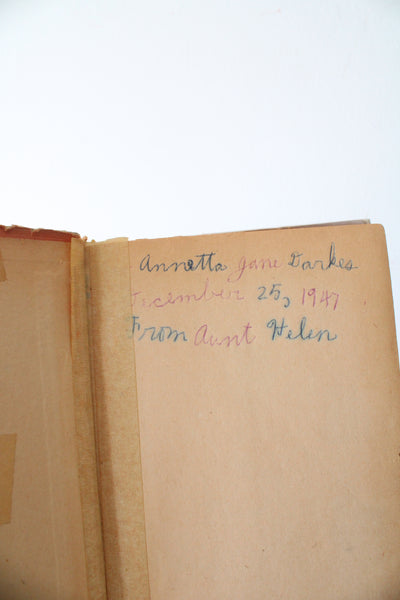 Annetta Jane Darkes
December 25, 1947
From Aunt Helen